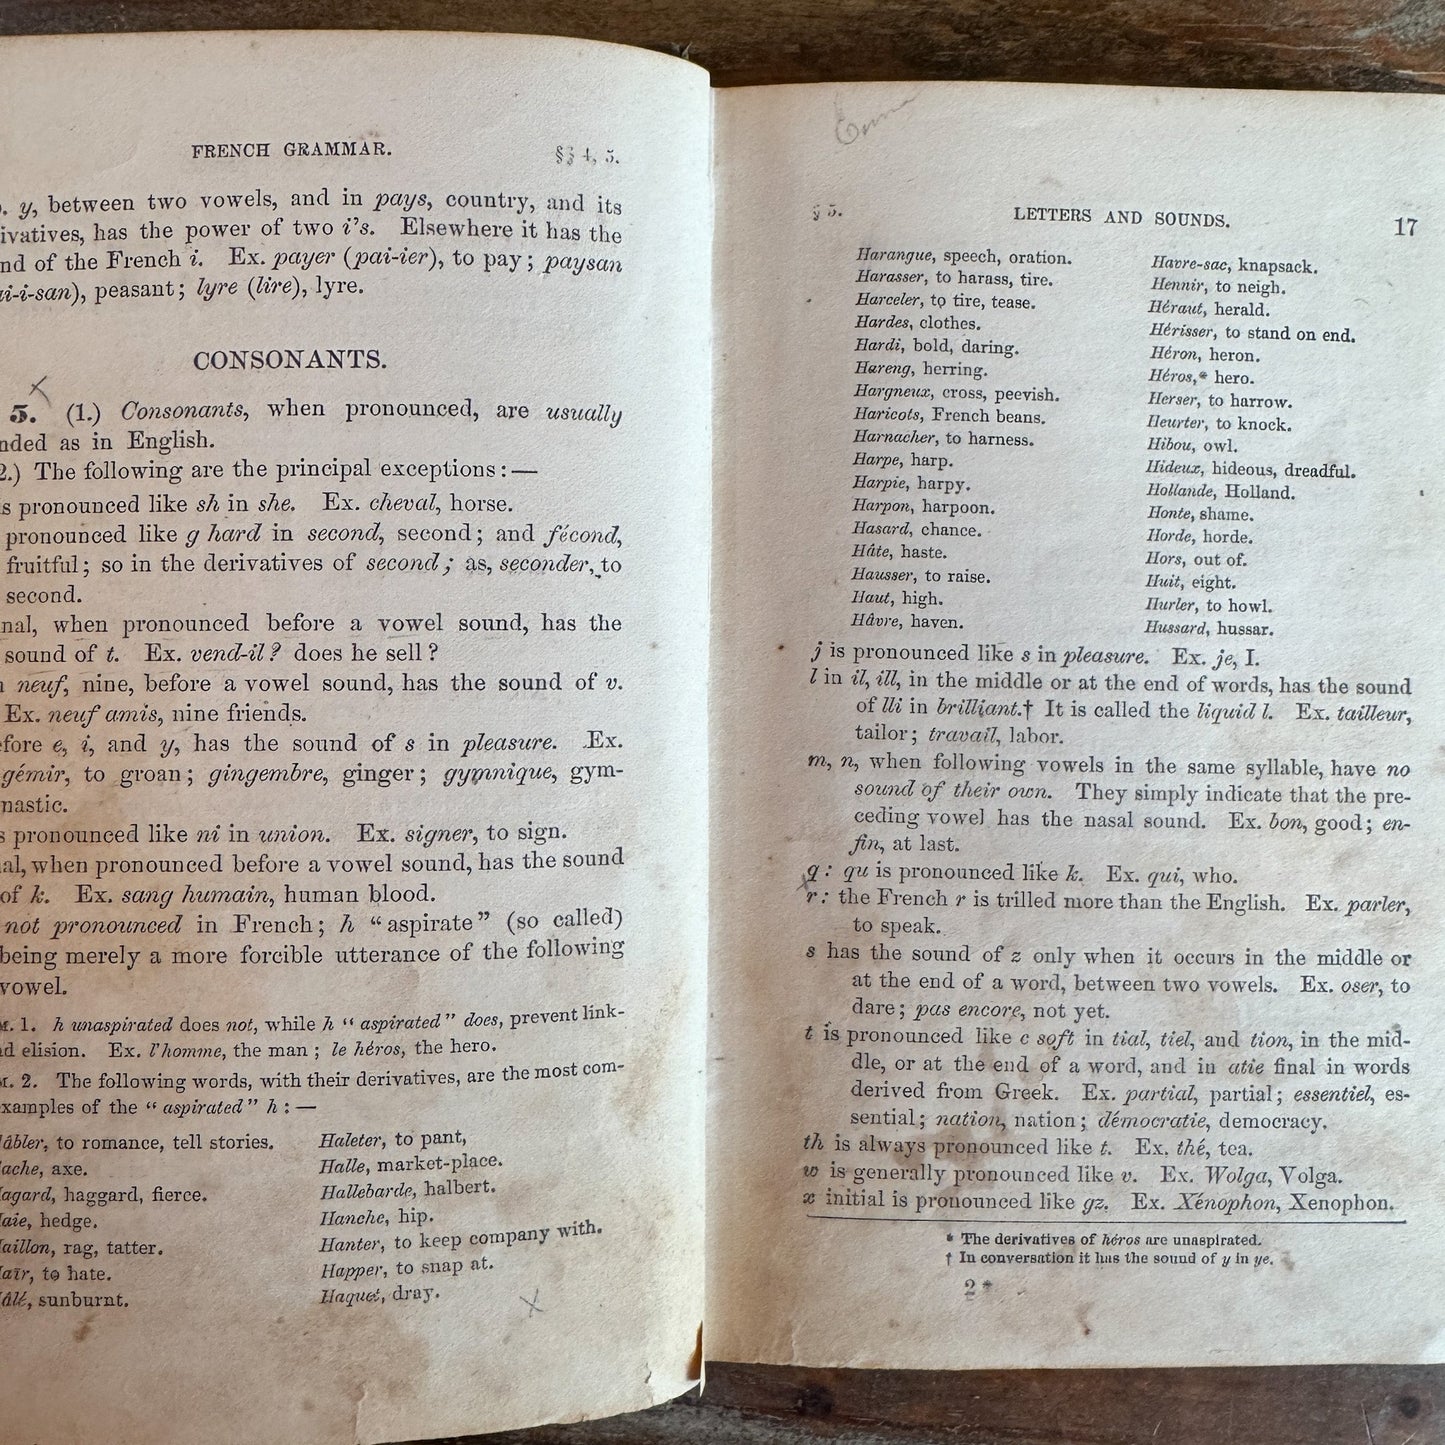 FRENCH GRAMMAR. §§ 4, 5.
y, between two vowels, and in pays, country, and its
ivatives, has the power of two i's. Elsewhere it has the
nd of the French i. Ex. payer (pai-ier), to pay; paysan
ai-i-san), peasant; lyre (lire), lyre.
CONSONANTS.
5. (1.) Consonants, when pronounced, are usually
nded as in English.
2.) The following are the principal exceptions:—
s pronounced like sh in she. Ex. cheval, horse.
pronounced like g hard in second, second; and fécond,
fruitful; so in the derivatives of second; as, seconder, to
second.
nal, when pronounced before a vowel sound, has the
sound of t. Ex. vend-il? does he sell?
neuf, nine, before a vowel sound, has the sound of v.
Ex. neuf amis, nine friends.
efore e, i, and y, has the sound of s in pleasure. Ex.
gémir, to groan; gingembre, ginger; gymnique, gym-
nastic.
s pronounced like ni in union. Ex. signer, to sign.
al, when pronounced before a vowel sound, has the sound
of k. Ex. sang humain, human blood.
not pronounced in French; h "aspirate" (so called)
being merely a more forcible utterance of the following
vowel.
M. 1. h unaspirated does not, while h "aspirated" does, prevent link-
d elision. Ex. l'homme, the man; le héros, the hero.
M. 2. The following words, with their derivatives, are the most com-
xamples of the "aspirated" h:—
âbler, to romance, tell stories.
ache, axe.
agard, haggard, fierce.
aie, hedge.
aillon, rag, tatter.
aïr, to hate.
âlé, sunburnt.
Haleter, to pant,
Halle, market-place.
Hallebarde, halbert.
Hanche, hip.
Hanter, to keep company with.
Happer, to snap at.
Haquet, dray.
x
Emma
§ 5. LETTERS AND SOUNDS. 17
Harangue, speech, oration.
Harasser, to harass, tire.
Harceler, to tire, tease.
Hardes, clothes.
Hardi, bold, daring.
Hareng, herring.
Hargneux, cross, peevish.
Haricots, French beans.
Harnacher, to harness.
Harpe, harp.
Harpie, harpy.
Harpon, harpoon.
Hasard, chance.
Hâte, haste.
Hausser, to raise.
Haut, high.
Hâvre, haven.
Havre-sac, knapsack.
Hennir, to neigh.
Héraut, herald.
Hérisser, to stand on end.
Héron, heron.
Héros,* hero.
Herser, to harrow.
Heurter, to knock.
Hibou, owl.
Hideux, hideous, dreadful.
Hollande, Holland.
Honte, shame.
Horde, horde.
Hors, out of.
Huit, eight.
Hurler, to howl.
Hussard, hussar.
j is pronounced like s in pleasure. Ex. je, I.
l in il, ill, in the middle or at the end of words, has the sound
of lli in brilliant.† It is called the liquid l. Ex. tailleur,
tailor; travail, labor.
m, n, when following vowels in the same syllable, have no
sound of their own. They simply indicate that the pre-
ceding vowel has the nasal sound. Ex. bon, good; en-
fin, at last.
q: qu is pronounced like k. Ex. qui, who.
r: the French r is trilled more than the English. Ex. parler,
to speak.
s has the sound of z only when it occurs in the middle or
at the end of a word, between two vowels. Ex. oser, to
dare; pas encore, not yet.
t is pronounced like c soft in tial, tiel, and tion, in the mid-
dle, or at the end of a word, and in atie final in words
derived from Greek. Ex. partial, partial; essentiel, es-
sential; nation, nation; démocratie, democracy.
th is always pronounced like t. Ex. thé, tea.
w is generally pronounced like v. Ex. Wolga, Volga.
x initial is pronounced like gz. Ex. Xénophon, Xenophon.
* The derivatives of héros are unaspirated.
† In conversation it has the sound of y in ye.
2*